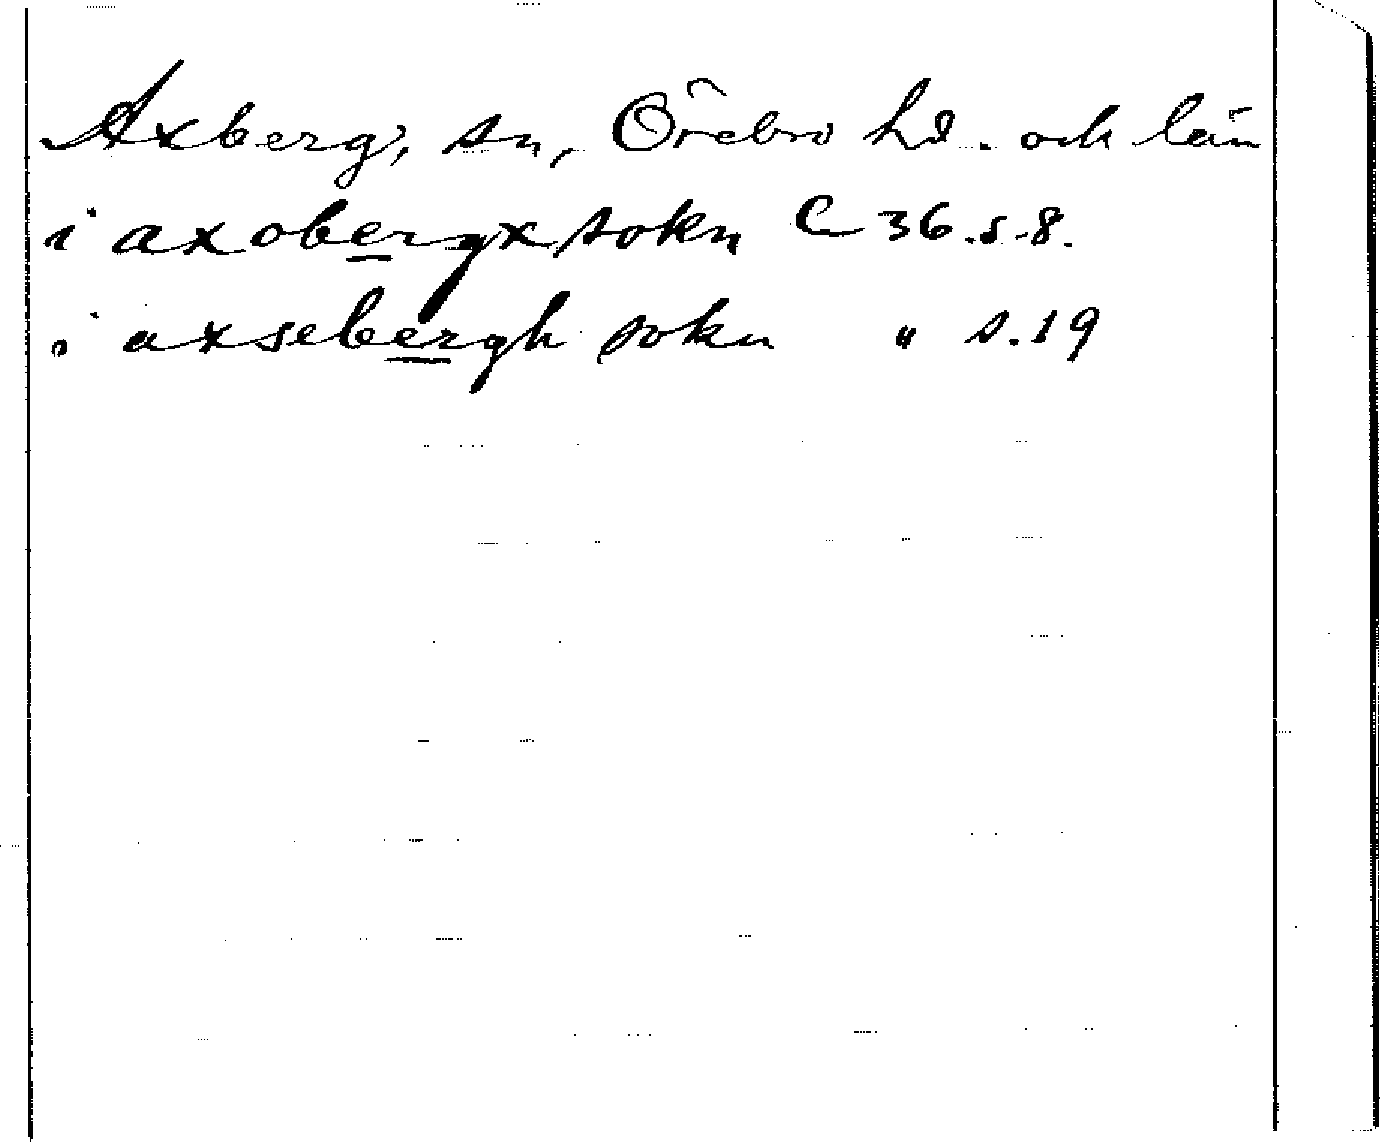 Axberg, sn, Örebro hd. och län
i axobergx sokn C 36 s. 8.
i axsebergh sokn " s. 19